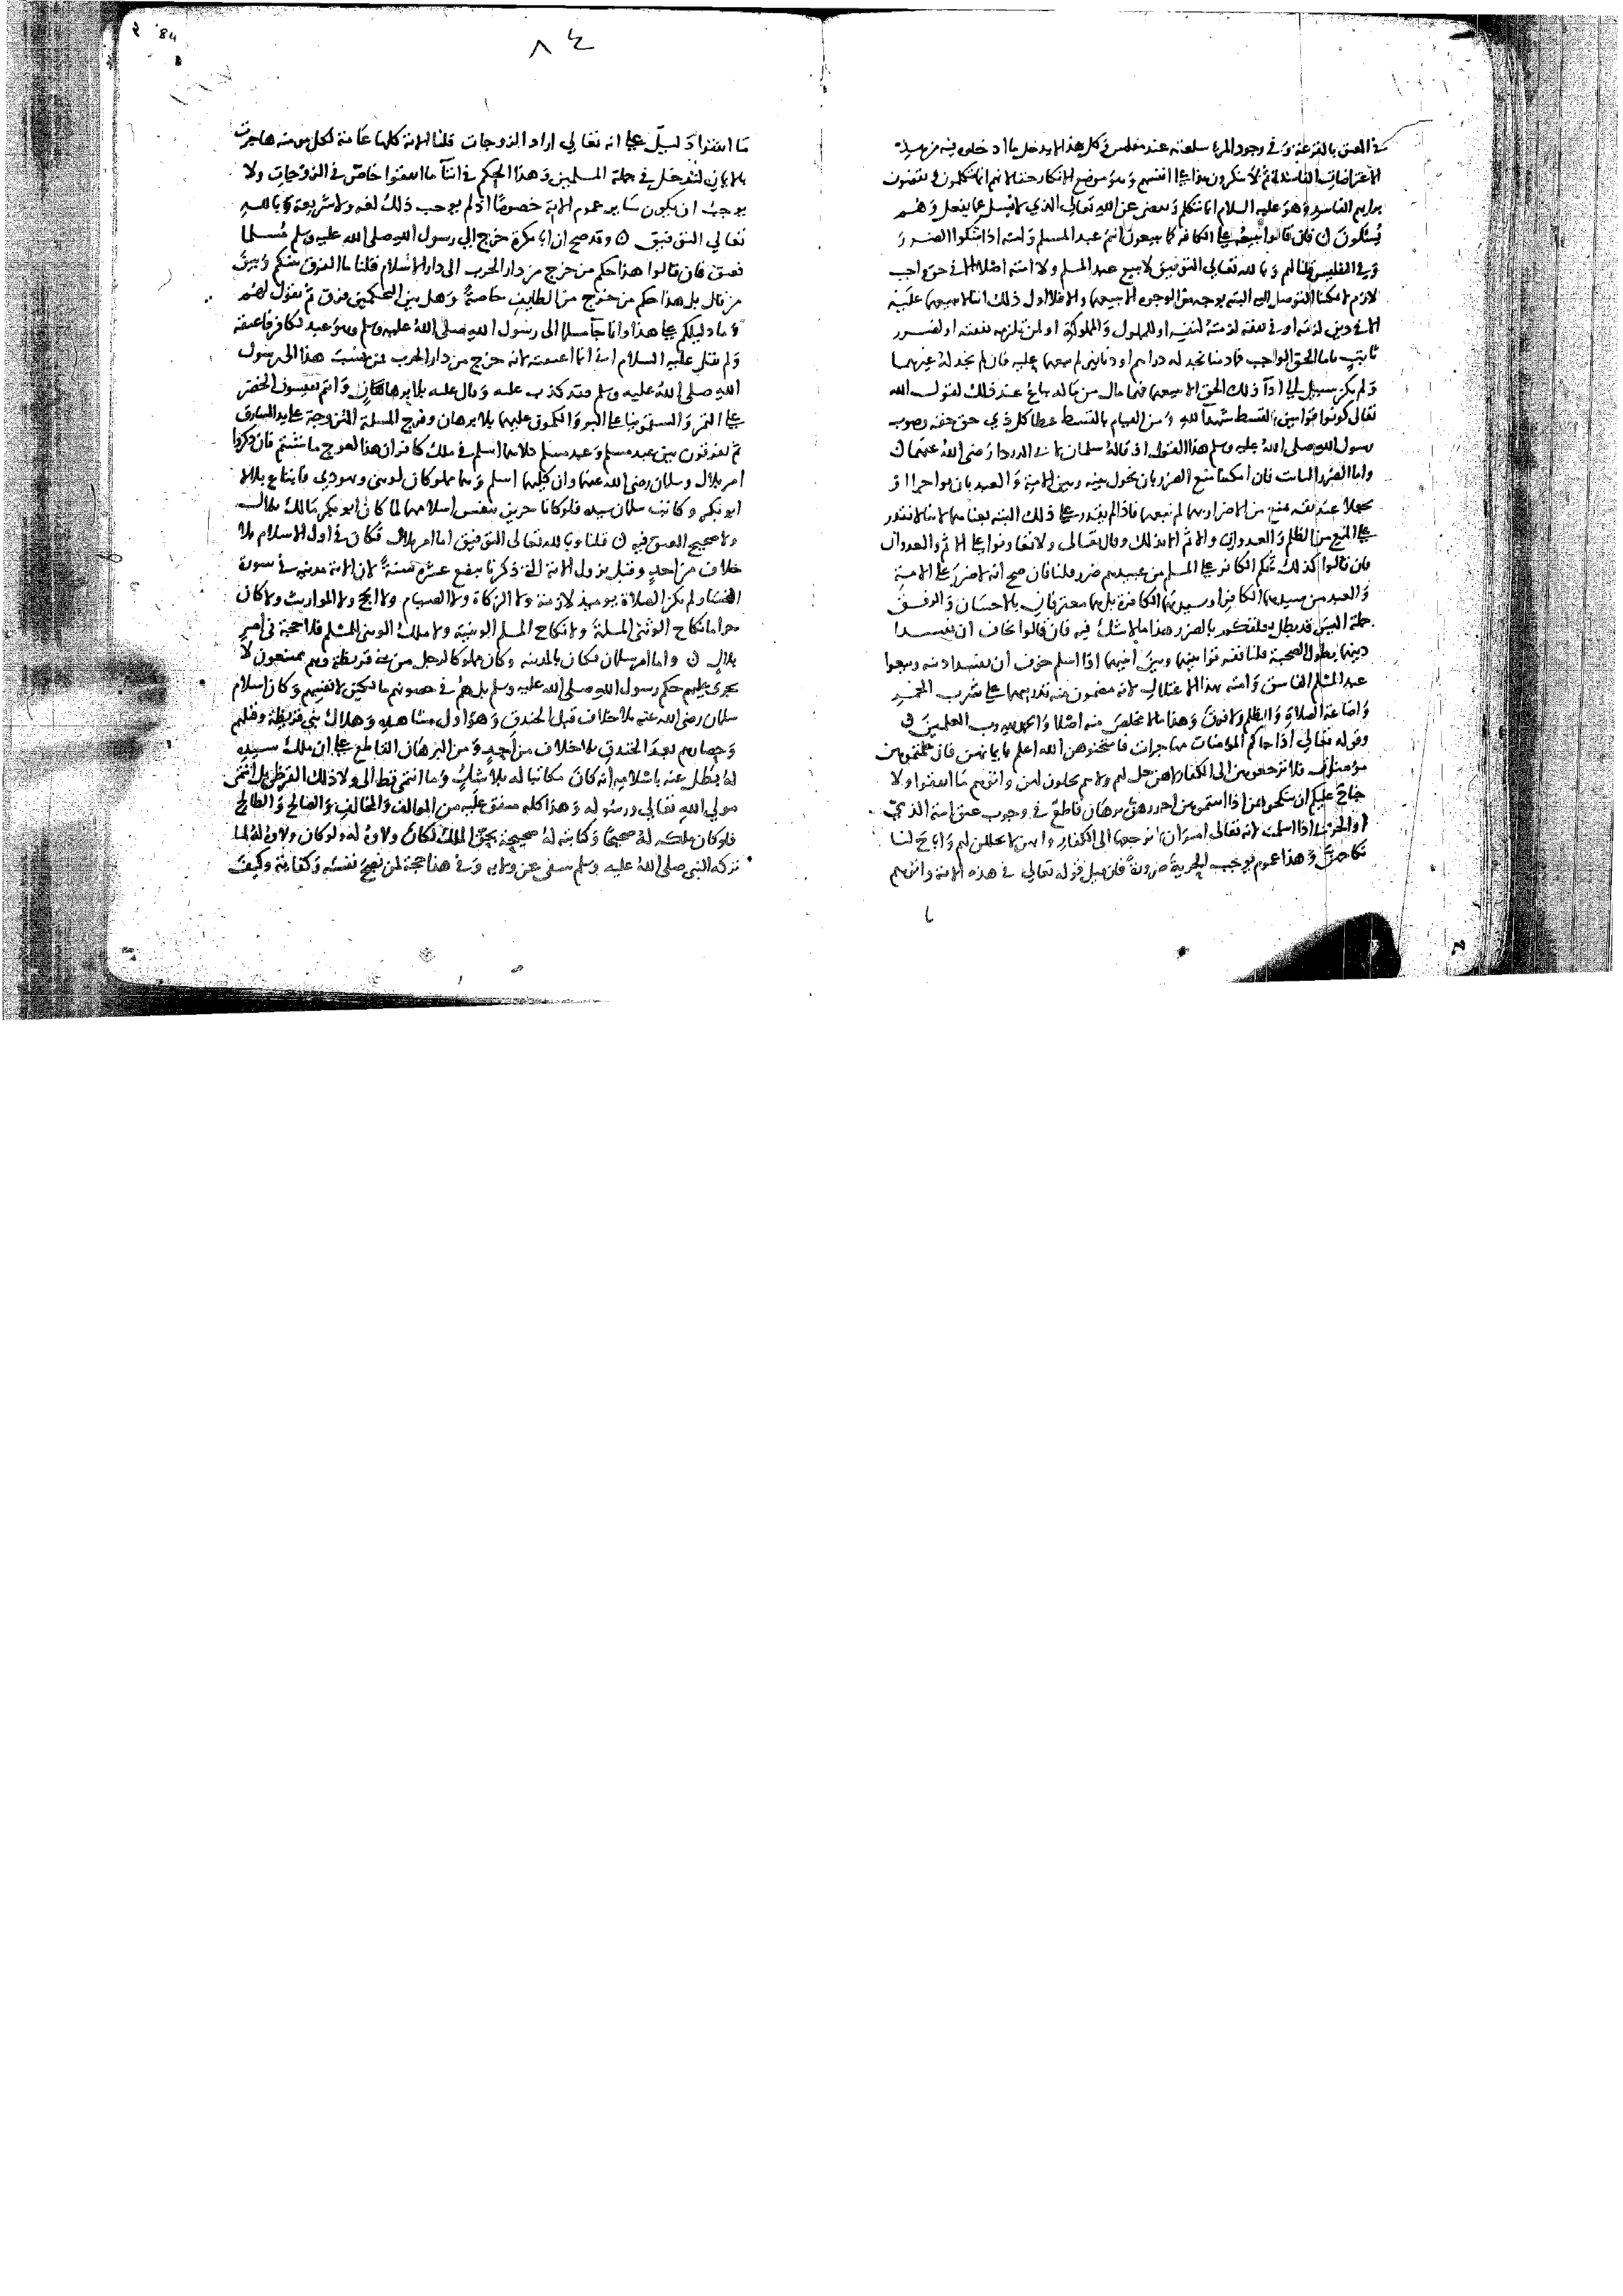 في العتق بالقرعة وفي وجود المرء سلعته عند مفلس فكل هذا لا يدخل ما ادخلوه فيه من هذه
الاعتراضات الفاسدة ثم لا ينكرون هذا على انفسهم وهو موضع الانكار حقا لانهم انما يتكلمون ويقضون
برايهم الفاسد وهو عليه السلام انما يتكلم ويقضي عن الله تعالى الذي لا يسل عما يفعل وهم
يسلون ن فان قالوا نبيعه على الكافر كما تبيعون انتم عبد المسلم وامته اذا شكوا الضرر و
وفي التفليس قلنا لهم وبالله تعالى التوفيق لا نبيع عبد المسلم ولا امته اصلا الا في حق واجب
لازم لا يمكننا التوصل اليه البتة بوجه من الوجوه الا ببيعهما والا فلا اول ذلك اننا لا نبيعهما عليه
الا في دين لزمه او في نفقة لزمته لنفسه او للمملوك والمملوكة او لمن تلزمه نفقته او لضرر
ثابت فاما الحق الواجب فما دمنا نجد له دراهم او دنانير لم نبعهما عليه فان لم نجد له غيرهما
ولم يكن سبيل الى اداء ذلك الحق الا ببيعهما فهما مال من ماله يباع عند ذلك لقول الله
تعالى كونوا قوامين بالقسط شهدا لله ومن القيام بالقسط اعطا كل ذي حق حقه وصوب
رسول الله صلى الله عليه وسلم هذا القول اذ قاله سلمان لابي الدرداء رضي الله عنهما ن
واما الضرر الثابت فان امكننا منع الضرر بان نحول بينه وبين الامة والعبد بان يواجرا او
يجعلا عند ثقه يمنع من الاضرار بهما لم نبعهما فاذا لم نقدر على ذلك البتة بعناهما لاننا لا نقدر
على المنع من الظلم والعدوان والاثم الا بذلك وقال تعالى ولا تعاونوا على الاثم والعدوان
فان قالوا كذلك تملك الكافر على المسلم من عبيدهم ضرر قلنا فان صح انه لا ضرر على الامة
والعبد من سيدهما الكافر او سيدتهما الكافرة بل هما معترفان بالاحسان والرفق
جملة اليس قد بطل تعلقكم بالضرر هذا ما لا شك فيه فان قالوا نخاف ان يفسدا
دينهما بطول الصحبة قلنا ففرقوا بينهما وبين ابنهما اذا اسلم خوف ان يفسدا دينه وبيعوا
عبد المسلم الفاسق وامته بهذا الاعتلال لانه مضمون منه تدريبهما على شرب الخمر
واضاعة الصلاة والظلم ولا فرق وهذا ما لا مخلص منه اصلا والحمد لله رب العلمين ن
وقوله تعالى اذا جاكم المؤمنات مهاجرات فامتحنوهن الله اعلم بايمانهن فان علمتموهن
مؤمنات فلا ترجعوهن الى الكفار لا هن حل لهم ولا هم يحلون لهن واتوهم ما انفقوا ولا
جناح عليكم ان تنكحوهن اذا اتيتموهن اجورهن برهان قاطع في وجوب عتق امة الذمي
او الحربي اذا اسلمت لانه تعالى امر ان لا نرجعها الى الكفار وانهن لا يحللن لهم واباح لنا
نكاحهن وهذا عموم يوجب الحرية ضرورة فان قيل قوله تعالى في هذه الاية واتوهم
٨٤
ما انفقوا دليل على انه تعالى اراد الزوجات قلنا الاية كلها عامة لكل مومنة هاجرت
بالايمان لتدخل في جملة المسلمين وهذا الحكم في ايتاء ما انفقوا خاص في الزوجات ولا
يوجب ان يكون ساير عموم الاية خصوصا اذ لم يوجب ذلك لغة ولا شريعة وبالله
تعالى التوفيق ن وقد صح ان ابا بكرة خرج الى رسول الله صلى الله عليه وسلم مسلما
فعتق فان قالوا هذا حكم من خرج من دار الحرب الى دار الاسلام قلنا ما الفرق بينكم وبين
من قال بل هذا حكم من خرج من الطايف خاصة وهل بين التحكمين فرق ثم نقول لهم
وما دليلكم على هذا وانما جا مسلما الى رسول الله صلى الله عليه وسلم وهو عبد لكافر فاعتقه
ولم يقل عليه السلام اني انما اعتقته لانه خرج من دار الحرب فمن نسب هذا الى رسول
الله صلى الله عليه وسلم فقد كذب عليه وقال عليه بلا برهان وانتم تقيسون الخضر
على التمر والسقمونيا على البر والكمون عليهما بلا برهان وفرج المسلمة المتزوجة على يد السارق
ثم تفرقون بين عبد مسلم وعبد مسلم كلاهما اسلم في ملك كافر ان هذا لعوج ما شئتم فان ذكروا
امر بلال وسلمان رضي الله عنهما وان كليهما اسلم وهما مملوكان لوثني ويهودي فابتاع بلالا
ابو بكر وكاتب سلمان سيده فلو كانا حرين بنفس اسلامهما لما كان ابو بكر مالكا لبلال
ولا صحيح العتق فيه ن قلنا وبالله تعالى التوفيق اما امر بلال فكان في اول الاسلام بلا
خلاف من احد وقبل نزول الاية التي ذكرنا ببضع عشرة سنة لان الاية مدنية في سورة
النساء ولم تكن الصلاة يوميذ لازمة ولا الزكاة ولا الصيام ولا الحج ولا المواريث ولا كان
حراما نكاح الوثني المسلمة ولا نكاح المسلم الوثنية ولا ملك الوثني للمسلم فلا حجة في امر
بلال ن واما امر سلمان فكان بالمدينة وكان مملوكا لرجل من بني قريظة وهم ممتنعون لا
يجري عليهم حكم رسول الله صلى الله عليه وسلم بل هم في حصونهم مالكين لانفسهم وكان اسلام
سلمان رضي الله عنه بلا خلاف قبل الخندق وهو اول مشاهده وهلاك بني قريظة وقتلهم
وحصارهم بعد الخندق بلا خلاف من احد ومن البرهان القاطع على ان ملك سيده
له بطل عنه باسلامه انه كان مكاتبا له بلا شك وما انتمى قط الى ولا ذلك القرظي بل انتمى
مولى الله تعالى ورسوله وهذا كله متفق عليه من الموالف والمخالف والصالح والطالح
فلو كان ملكه له صحيحا وكتابته له صحيحة بحق الملك لكان ولاوه له ولو كان ولاوه له لما
تركه النبي صلى الله عليه وسلم ينتفي عن ولايه وفي هذا حجة لمن نصح نفسه وكفاية وكيف